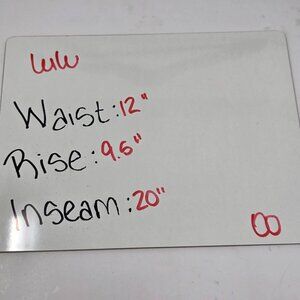 lulu
Waist: 12"
Rise: 9.5"
Inseam: 20"